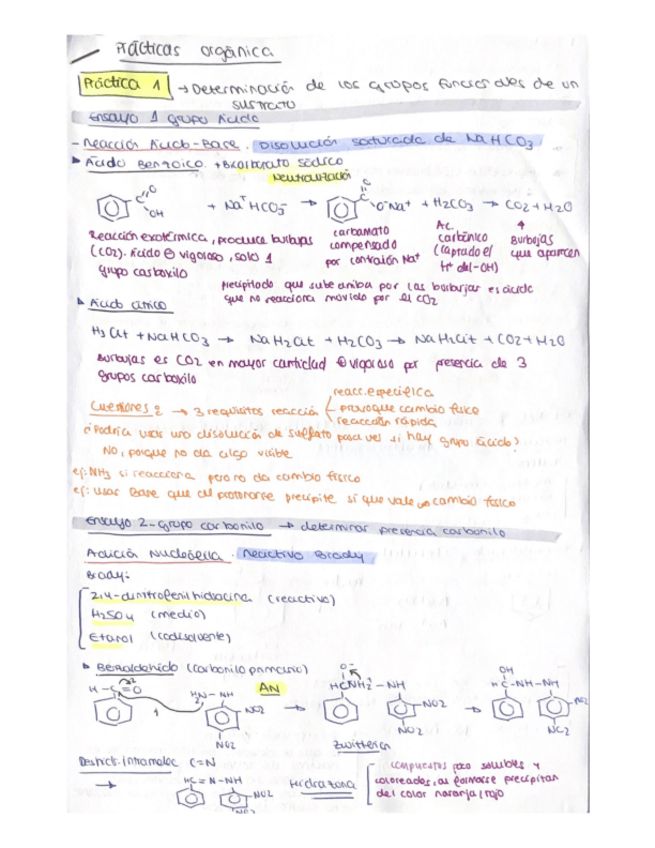 Prácticas orgánica
Práctica 1 → Determinación de los grupos funcionales de un
sustrato
Ensayo 1 grupo Ácido
- Reacción Ácido-Base. Disolución saturada de NaHCO3
Ácido Benzoico + Bicarbonato sódico
Neutralización
C O OH + Na+HCO3- → C O O-Na+ + H2CO3 → CO2 + H2O
Reacción exotérmica, produce burbujas
(CO2). Ácido ⊖ vigoroso, solo 1
grupo carboxilo
carbamato
compensado
por contraión Na+
Ac.
carbónico
(captado el
H+ del -OH)
Burbujas
que aparecen
Precipitado que sube arriba por las burbujas es ácido
que no reacciona movido por el CO2
Ácido cítrico
H3Cit + NaHCO3 → NaH2Cit + H2CO3 → NaH2Cit + CO2 + H2O
Burbujas es CO2 en mayor cantidad ⊕ vigoroso por presencia de 3
grupos carboxilo
Cuestiones: → 3 requisitos reacción
reacc. específica
provoque cambio físico
reacción rápida
¿Podría usar una disolución de sulfato para ver si hay grupo ácido?
No, porque no da algo visible
ej: NH3 si reacciona pero no da cambio físico
ej: usar Base que al protonarse precipite sí que vale cambio físico
Ensayo 2 - Grupo carbonilo → determinar presencia carbonilo
Adición Nucleófila. Reactivo Brady
Brady:
2,4-dinitrofenilhidracina (reactivo)
H2SO4 (medio)
Etanol (codisolvente)
Benzaldehído (carbonilo primario)
H-C=O + H2N-NH NO2 NO2 AN → O- HCNH2+-NH NO2 NO2 → OH HC-NH-NH NO2 NO2
Zwitterión
Deshidr. intramolec C=N
→ HC=N-NH NO2 NO2 Hidrazona
compuestos poco solubles y
coloreados, al formarse precipitan
del color naranja/rojo